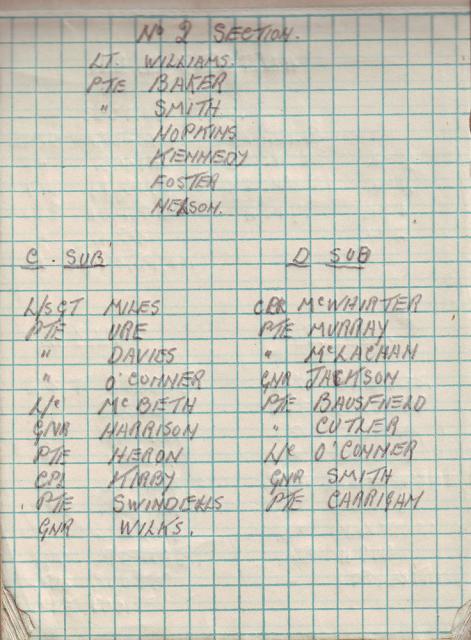 No 2 SECTION.
LT. WILLIAMS.
PTE BAKER
" SMITH
HOPKINS
KENNEDY
FOSTER
NELSON.
C. SUB
L/SGT MILES
PTE URE
" DAVIES
" O'CONNER
L/C McBETH
GNR HARRISON
PTE HERON
CPL KIRBY
PTE SWINDELLS
GNR WILKS.
D SUB
McWHIRTER
PTE MURRAY
" McLACHAN
GNR JACKSON
PTE
" CUTLER
L/C O'CONNER
GNR SMITH
PTE CARRIGAN